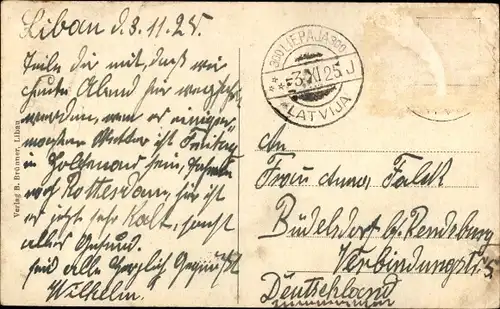 Libau d. 3.11.25.
Teile dir mit, daß wir
heute Abend hier wegfahren
werden, wenn es einiger
Wetter ist Freitag
in Holtenau sein, fahren
nach Rotterdam, hier ist
es jetzt sehr Kalt, sonst
alles Gesund.
seid alle herzlich Gegrüßt
Wilhelm.
Verlag B. Brünner, Libau
300 LIEPAJA 300
-3.XI 25 J
LATVIJA
An
Frau Anna Falck
Büdelsdorf b. Rendsburg
Verbindungstr. 5
Deutschland